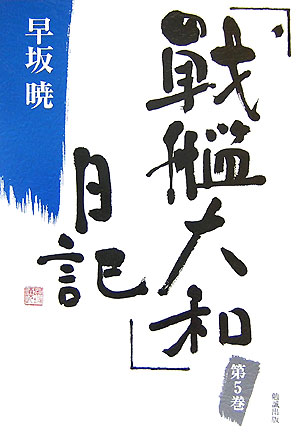 「戦艦大和
日記」
早坂 暁
第5巻
勉誠出版